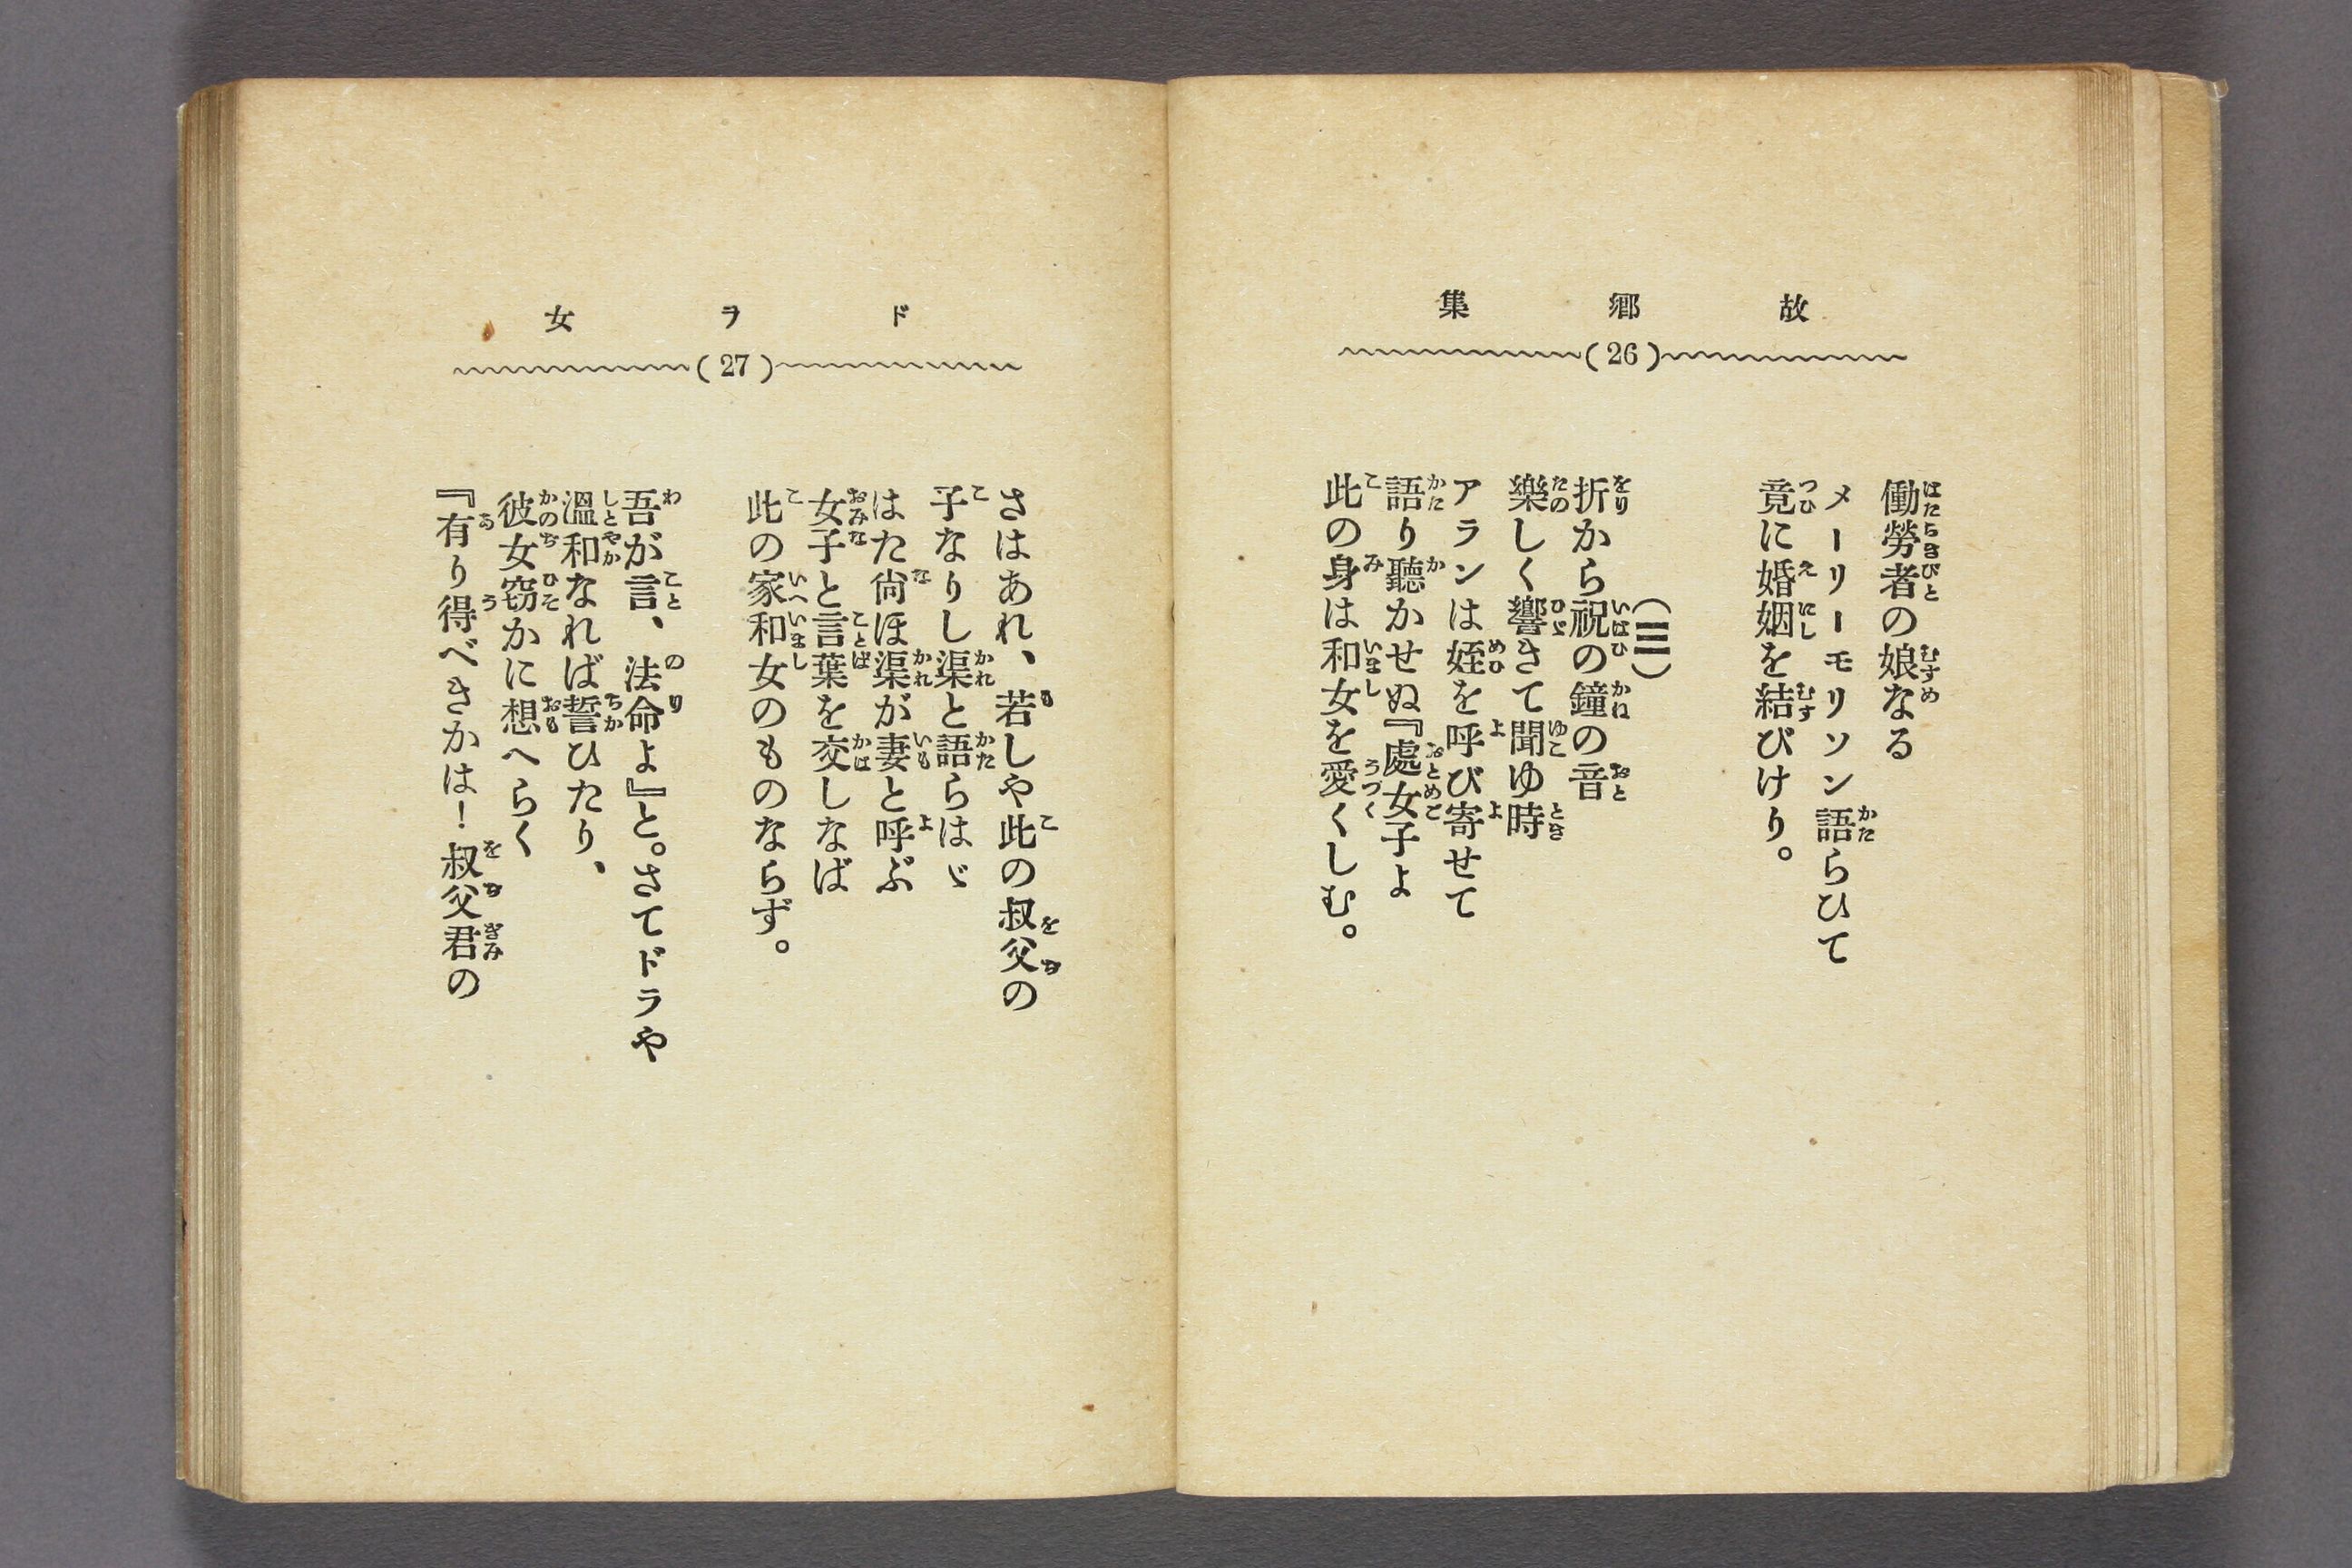 故郷集
(26)
働勞者の娘なる
メーリーモリソン語らひて
竟に婚姻を結びけり。
(三)
折から祝の鐘の音
樂しく響きて聞ゆ時
アランは姪を呼び寄せて
語り聽かせぬ『處女子よ
此の身は和女を愛くしむ。
ドヲ女
(27)
さはあれ、若しや此の叔父の
子なりし渠と語らはゞ
はた尙ほ渠が妻と呼ぶ
女子と言葉を交しなば
此の家和女のものならず。
吾が言、法命よ』と。さてドラや
溫和なれば誓ひたり、
彼女窃かに想へらく
『有り得べきかは！叔父君の